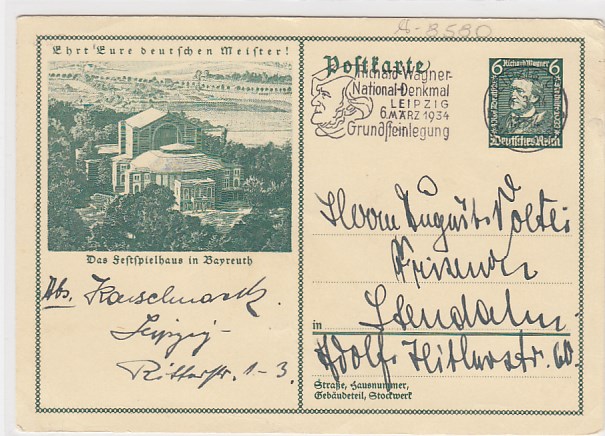 A-8580
Ehrt Eure deutschen Meister!
Postkarte
Richard-Wagner-
National-Denkmal
LEIPZIG
6. MÄRZ 1934
Grundsteinlegung
6 Richard Wagner 6
Deutsches Reich
Das Festspielhaus in Bayreuth
Abs. Karschmarck
Leipzig-
Ritterstr. 1-3.
Herrn August Voltei
Friseur
in Stendal
Adolf Hitlerstr. 60.
Straße, Hausnummer,
Gebäudeteil, Stockwerk